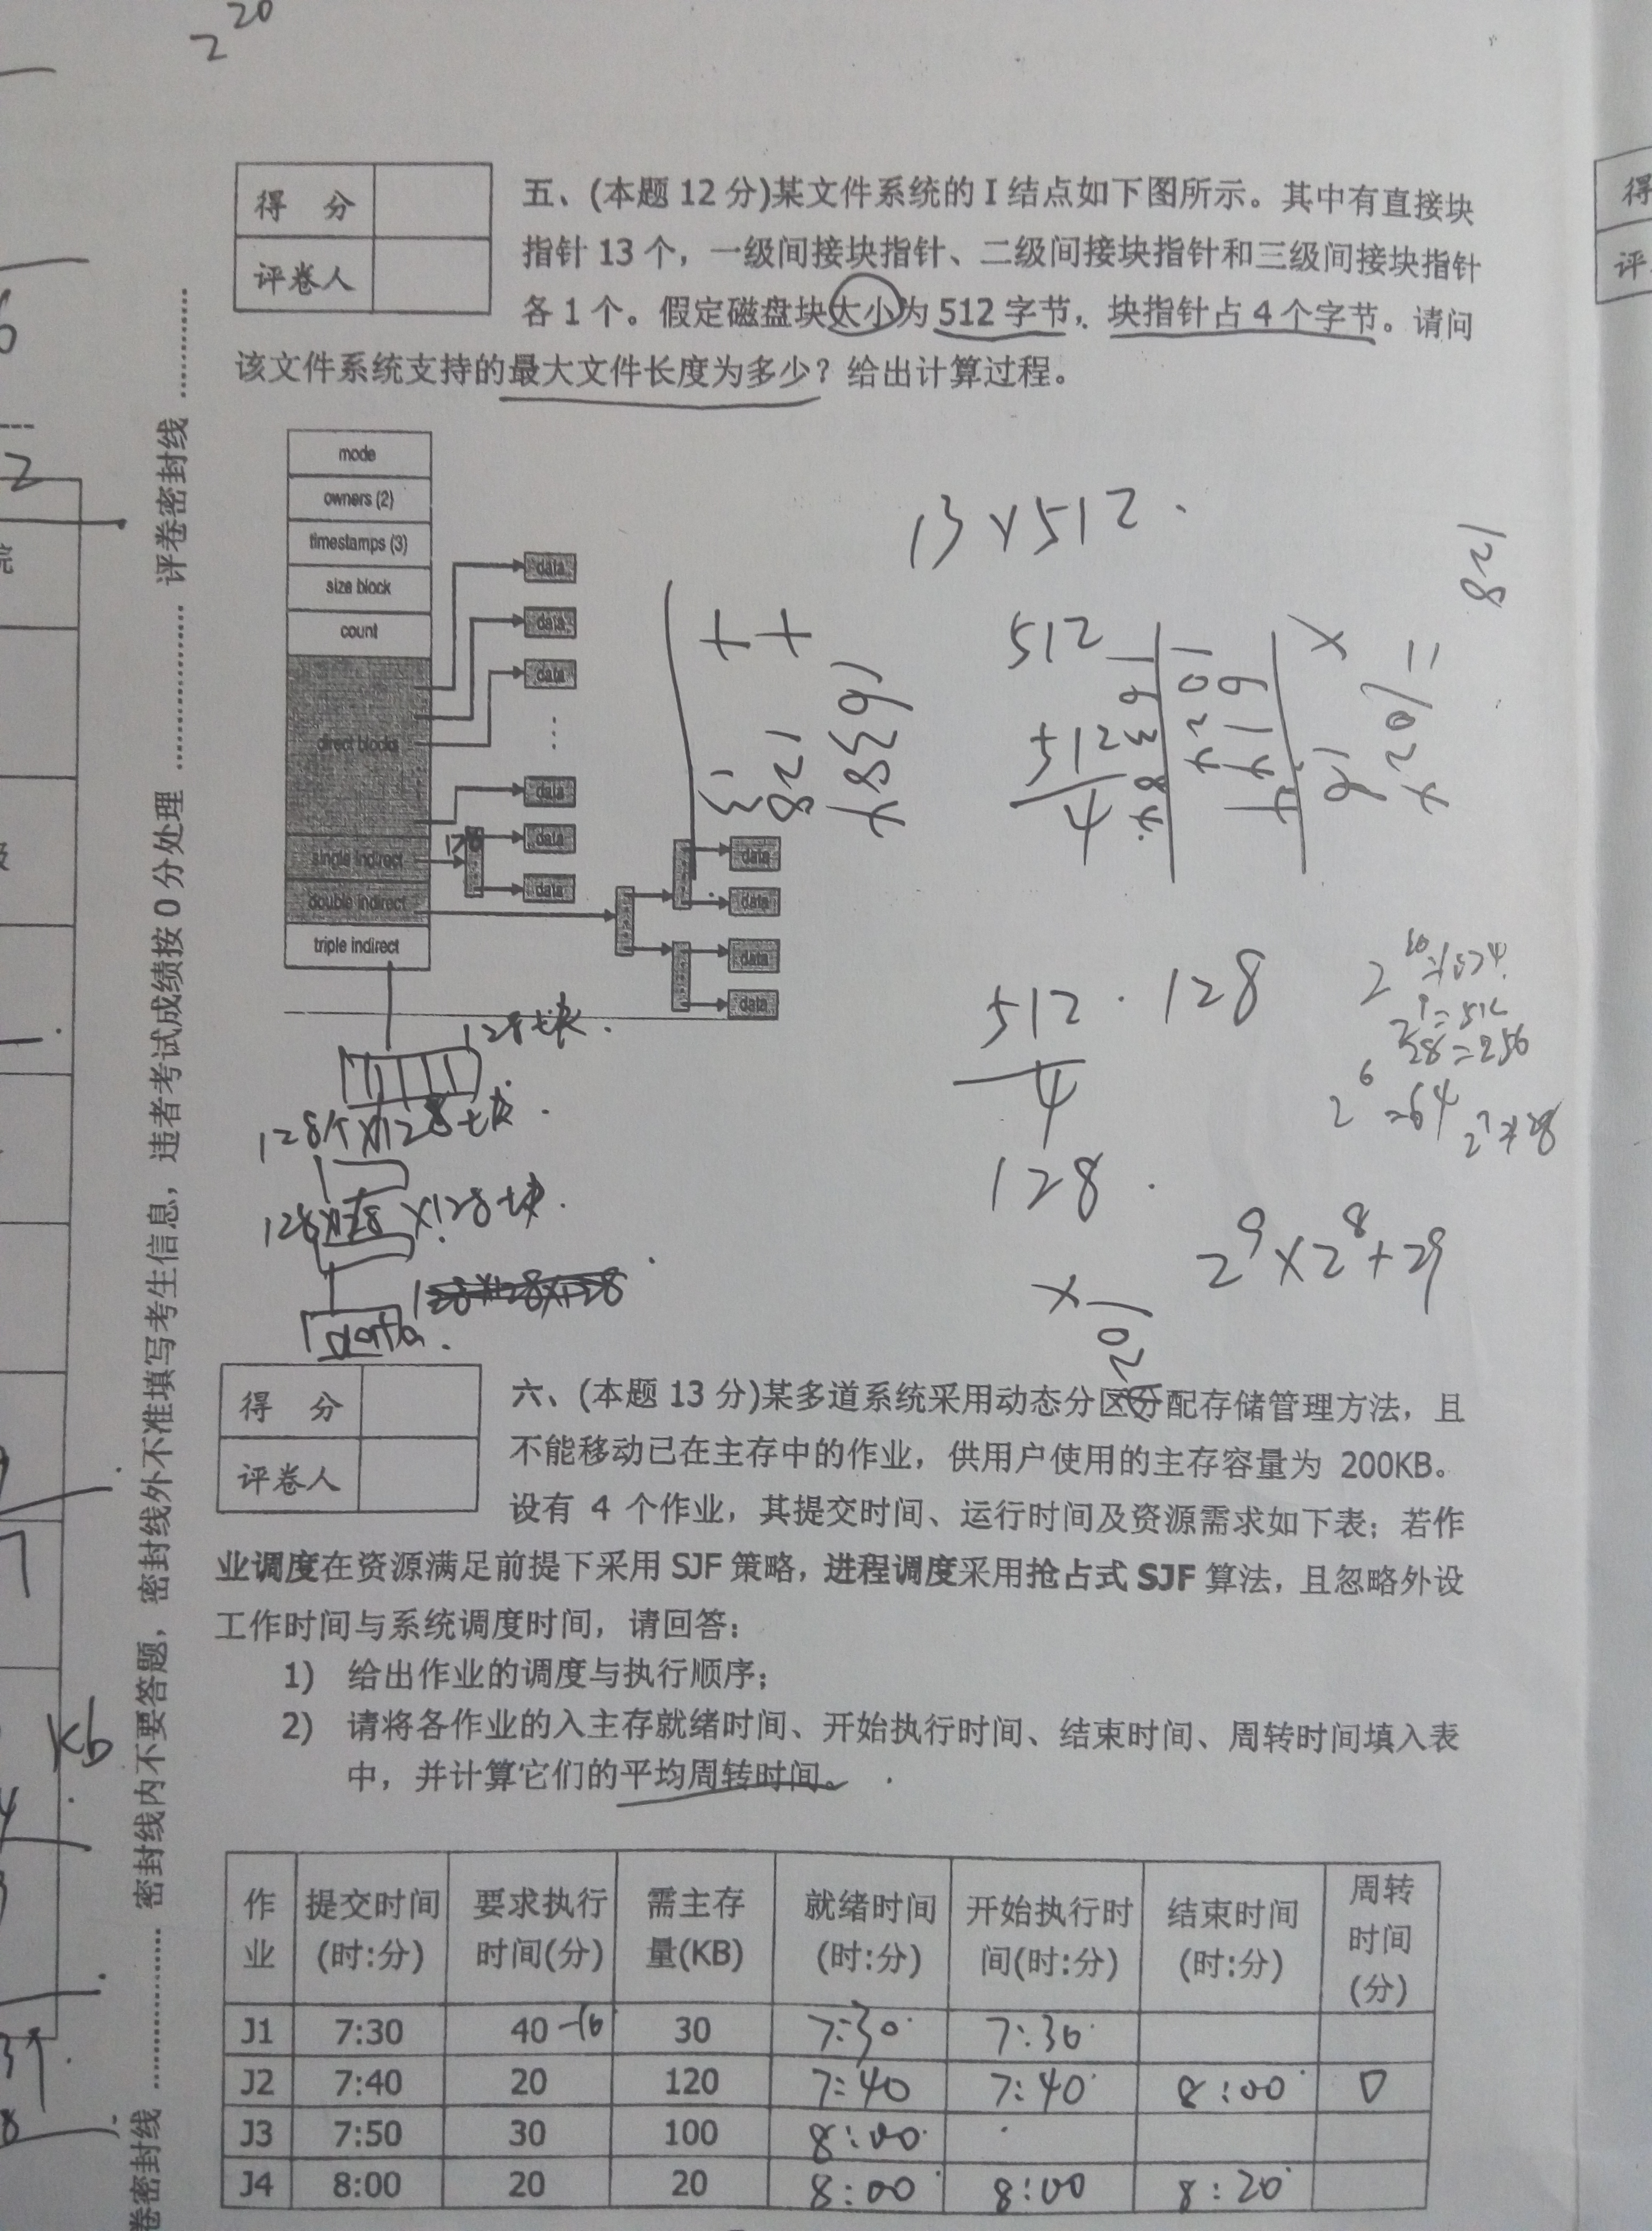 2^20
得 分
评卷人
五、(本题 12 分)某文件系统的 I 结点如下图所示。其中有直接块
指针 13 个，一级间接块指针、二级间接块指针和三级间接块指针
各 1 个。假定磁盘块大小为 512 字节，块指针占 4 个字节。请问
该文件系统支持的最大文件长度为多少？给出计算过程。
mode
owners (2)
timestamps (3)
size block
count
direct blocks
single indirect
double indirect
triple indirect
data
data
data
data
data
data
data
data
data
data
13×512
128
512
512
4
+ 13
+ 128
16384
16384
1024
× 1024
=
512
4
128
2^10=1024
2^9=512
2^8=256
2^6=64
128
2^9×2^8+2^9
128块
128个×128块
128×128×128块
data
得 分
评卷人
六、(本题 13 分)某多道系统采用动态分区分配存储管理方法，且
不能移动已在主存中的作业，供用户使用的主存容量为 200KB。
设有 4 个作业，其提交时间、运行时间及资源需求如下表；若作
业调度在资源满足前提下采用 SJF 策略，进程调度采用抢占式 SJF 算法，且忽略外设
工作时间与系统调度时间，请回答：
1) 给出作业的调度与执行顺序；
2) 请将各作业的入主存就绪时间、开始执行时间、结束时间、周转时间填入表
中，并计算它们的平均周转时间。
作业 提交时间(时:分) 要求执行时间(分) 需主存量(KB) 就绪时间(时:分) 开始执行时间(时:分) 结束时间(时:分) 周转时间(分)
J1 7:30 40 -10 30 7:30 7:30
J2 7:40 20 120 7:40 7:40 8:00 0
J3 7:50 30 100 8:00
J4 8:00 20 20 8:00 8:00 8:20
评卷密封线
密封线内不要答题，密封线外不准填写考生信息，违者考试成绩按 0 分处理
卷密封线
kb
得
评